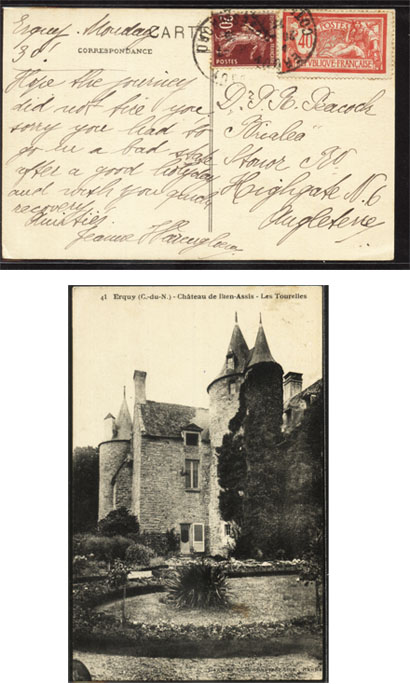 Erquy. Monday
30!
CARTE
CORRESPONDANCE
Hope the journey
did not tire you,
sorry you had to
go in a bad state
after a good holyday
and wish you quick
recovery
Amitiés
Jeanne
20
POSTES
POSTES
40
RÉPUBLIQUE FRANÇAISE
Dr. P. R. Peacock
Stonor Rd
Highgate N. 6
Angleterre
41 Erquy (C.-du-N.) - Château de Bien-Assis - Les Tourelles